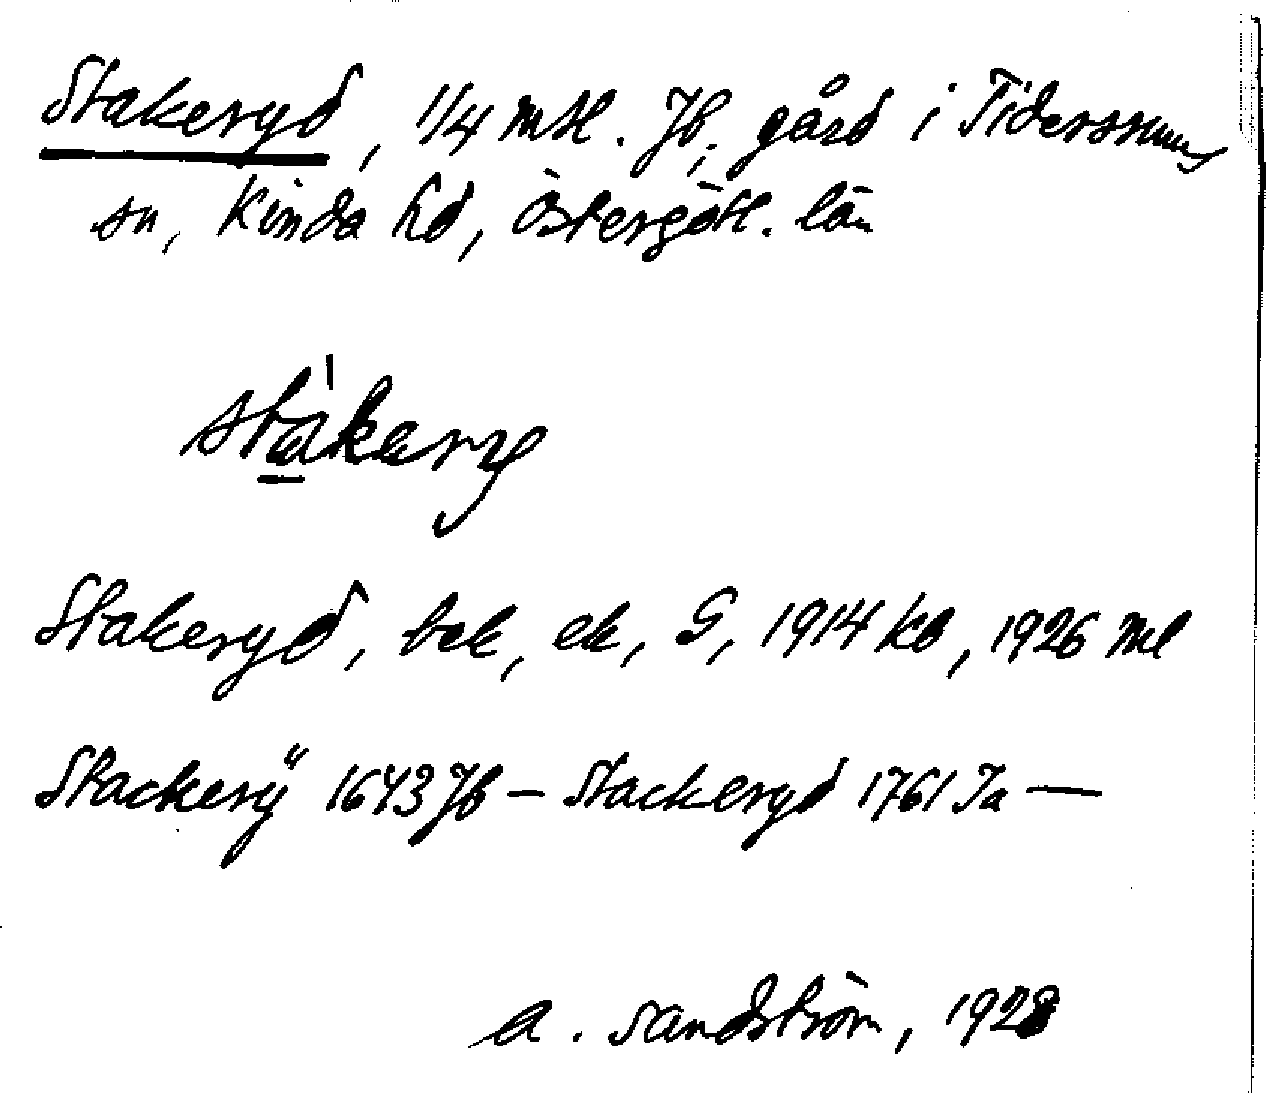 Stakeryd, 1/4 mtl. Jb, gård i Tidersrums
sn, Kinda hd, Östergötl. län
stàkery
Stakeryd, bek, ek, G, 1914 kb, 1926 Ml
Stackerÿ 1643 Jb – Stackeryd 1761 Ja —
A. Sandström, 1928